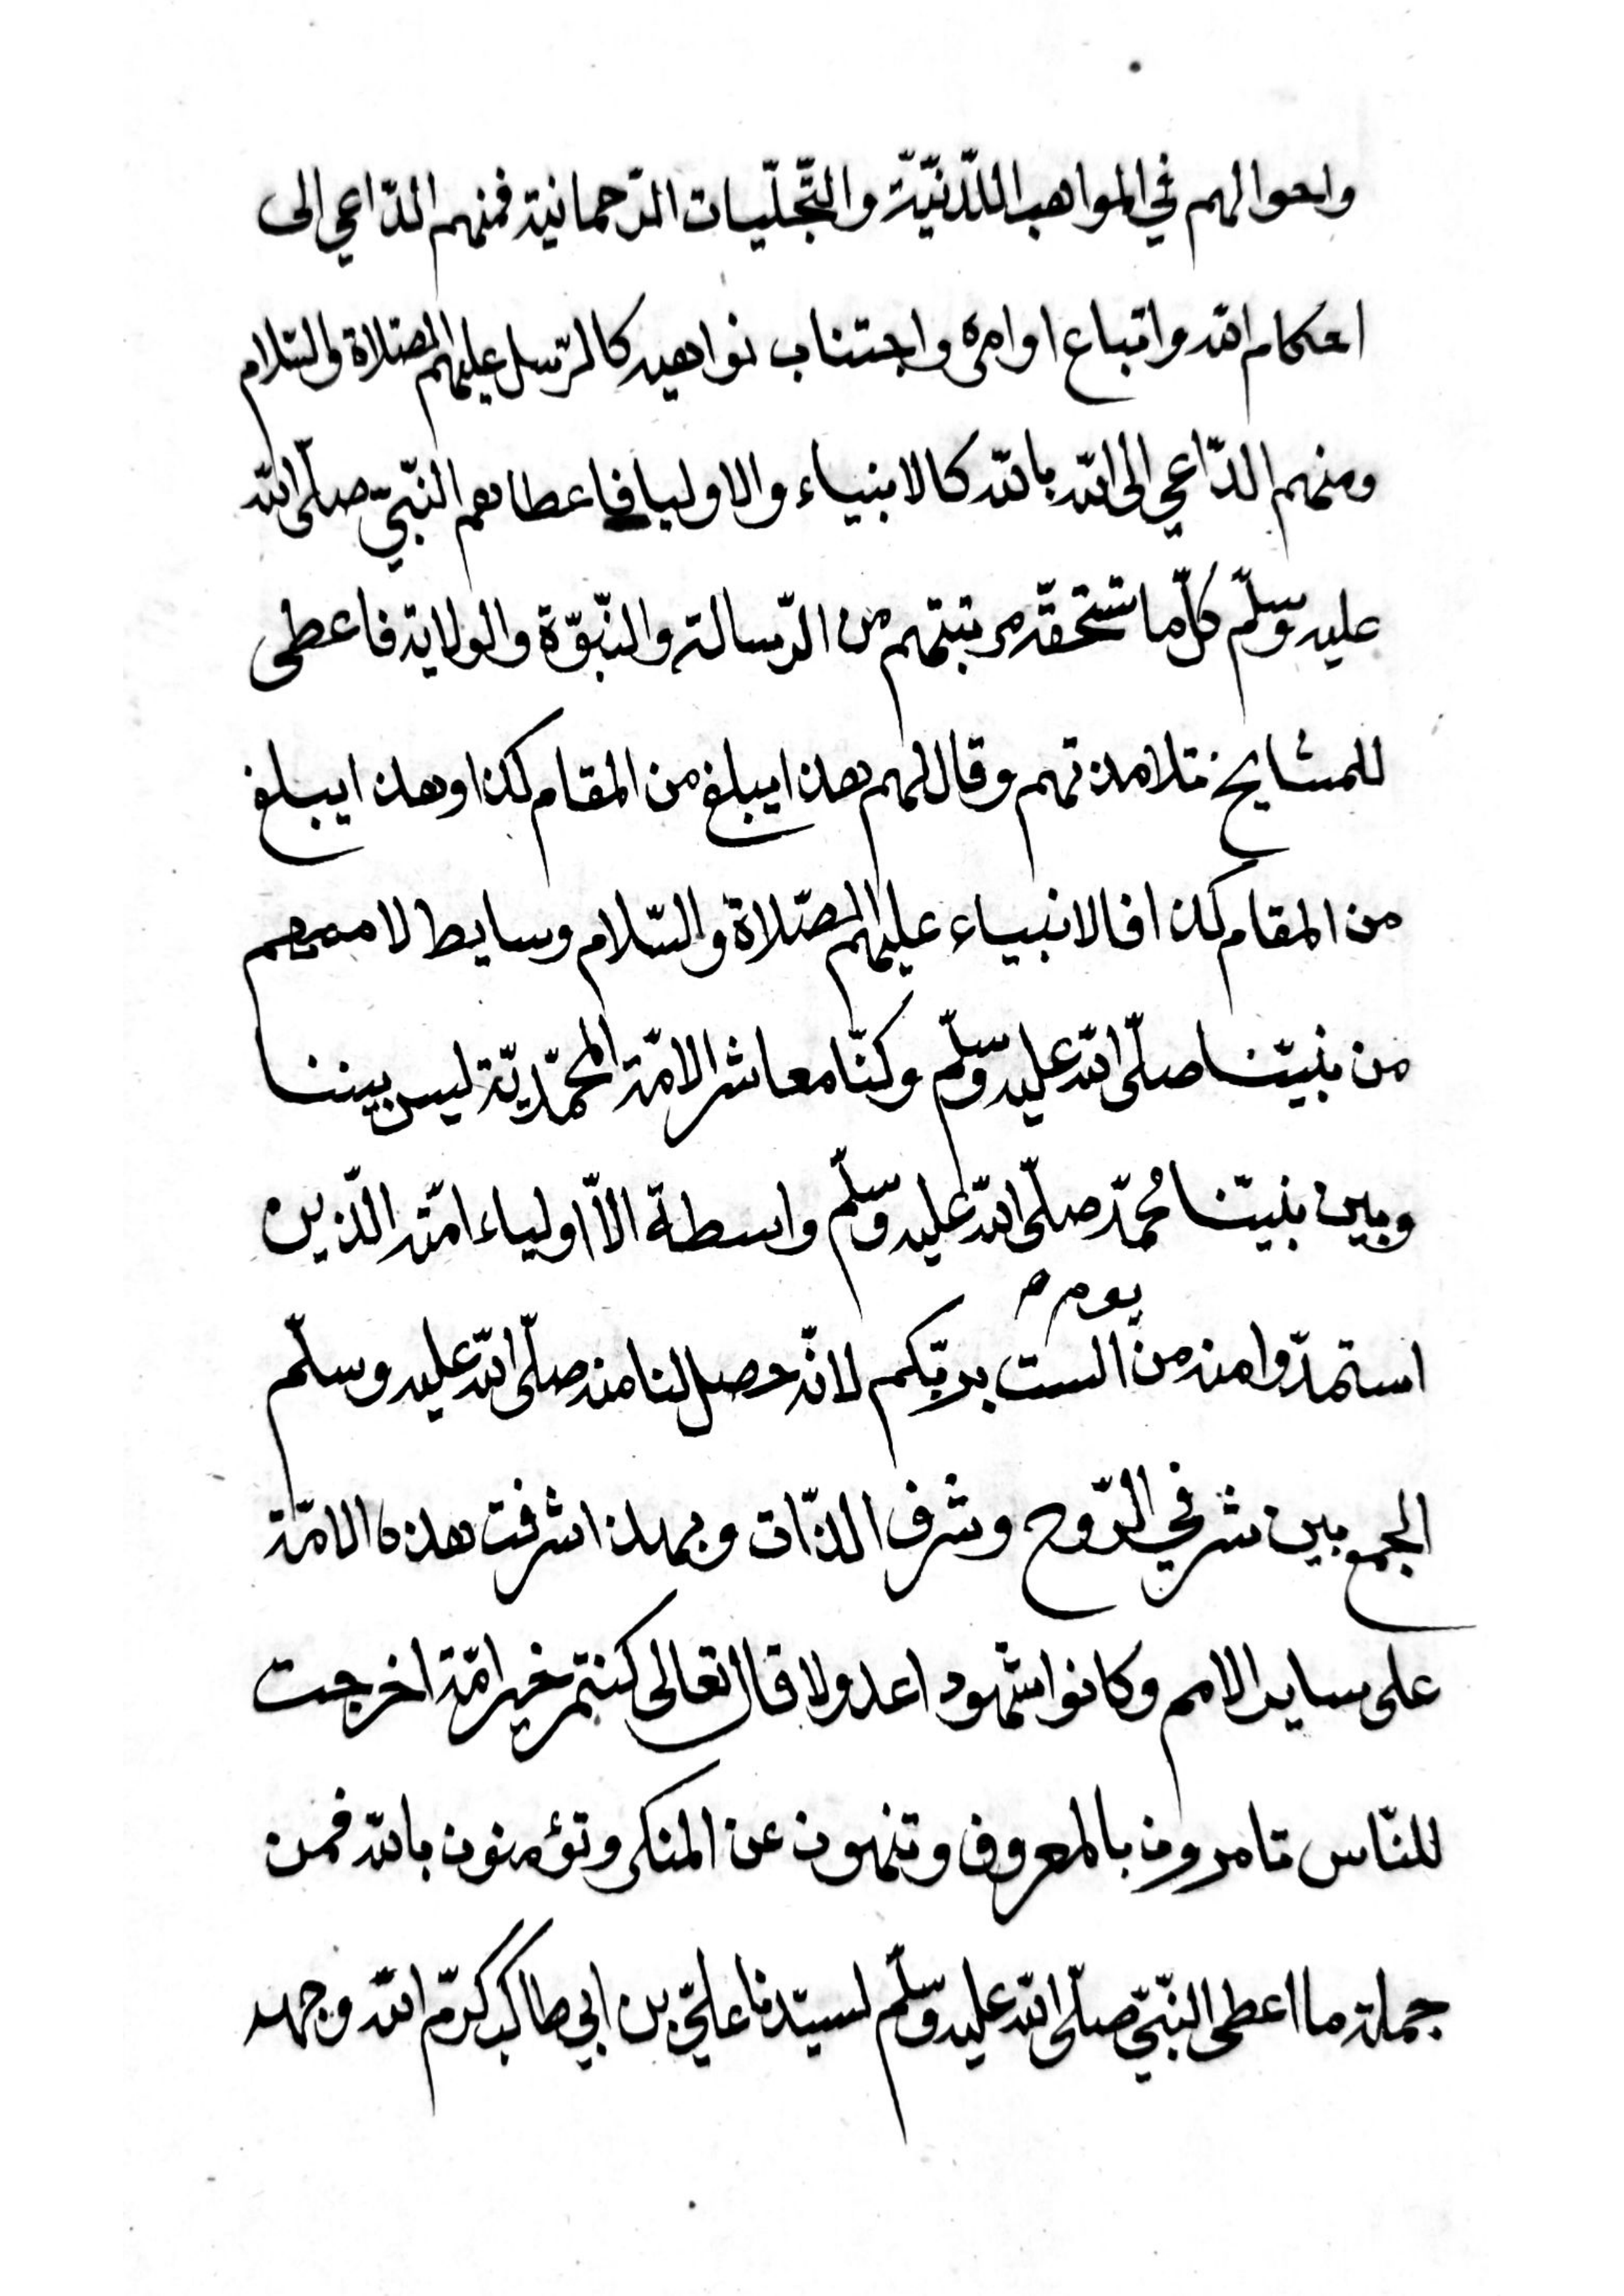 واحوالهم في المواهب اللّدنّيّة والتّجلّيات الرّحمانية فمنهم الدّاعي الى
احكام الله واتباع اوامره واجتناب نواهيه كالرّسل عليهم الصّلاة والسّلام
ومنهم الدّاعي الى الله بالله كالانبياء والاوليا فاعطاهم النّبيّ صلّى الله
عليه وسلّم كلّ ما تستحقّه مرتبتهم من الرّسالة والنّبوّة والولاية فاعطى
للمشايخ تلامذتهم وقال لهم هذا يبلغ من المقام كذا وهذا يبلغ
من المقام كذا فالانبياء عليهم الصّلاة والسّلام وسايط لاممهم
من نبيّنا صلّى الله عليه وسلّم وكنّا معاشر الامّة المحمّديّة ليس بيننا
وبين نبيّنا مُحمّد صلّى الله عليه وسلّم واسطة الاّ اولياء امّته الّذين
استمدّوا منه من يوم الست بربّكم لانّه حصل لنا منه صلّى الله عليه وسلّم
الجمع بين شرفي الرّوح وشرف الذّات وبهذا شرفت هذه الامّة
على ساير الامم وكانوا شهودا عدولا قال تعالى كنتم خير امّة اخرجت
للنّاس تامرون بالمعروف وتنهون عن المنكر وتؤمنون بالله فمن
جملة ما اعطى النّبيّ صلّى الله عليه وسلّم لسيّدنا عليّ بن ابي طالب كرّم الله وجهه